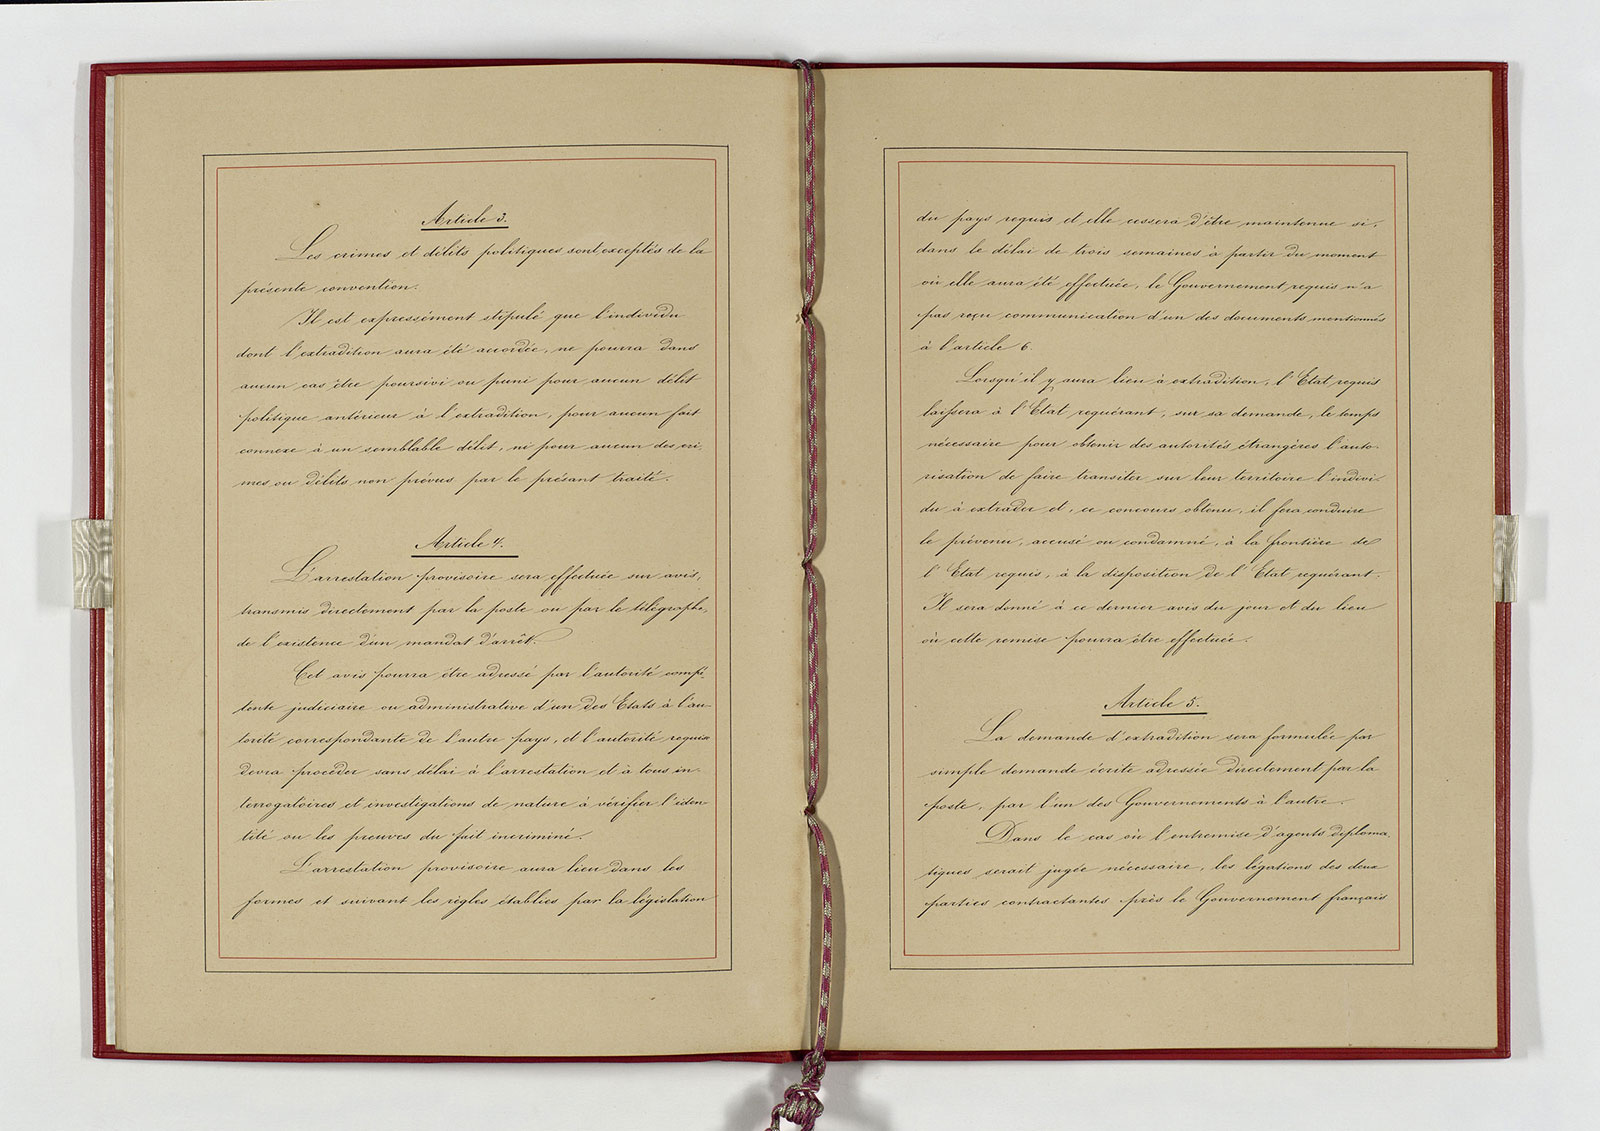 Article 3.
Les crimes et délits politiques sont exceptés de la
présente convention.
Il est expressément stipulé que l'individu
dont l'extradition aura été accordée, ne pourra dans
aucun cas être poursivi ou puni pour aucun délit
politique antérieur à l'extradition, pour aucun fait
connexe à un semblable délit, ni pour aucun des cri-
mes ou délits non prévus par le présent traité.
Article 4.
L'arrestation provisoire sera effectuée sur avis,
transmis directement par la poste ou par le télégraphe,
de l'existence d'un mandat d'arrêt.
Cet avis pourra être adressé par l'autorité compé-
tente judiciaire ou administrative d'un des Etats à l'au-
torité correspondante de l'autre pays, et l'autorité requise
devra procéder sans délai à l'arrestation et à tous in-
terrogatoires et investigations de nature à vérifier l'iden-
tité ou les preuves du fait incriminé.
L'arrestation provisoire aura lieu dans les
formes et suivant les règles établies par la législation
du pays requis et elle cessera d'être maintenue si,
dans le délai de trois semaines à partir du moment
où elle aura été effectuée, le Gouvernement requis n'a
pas reçu communication d'un des documents mentionnés
à l'article 6.
Lorsqu'il y aura lieu à extradition, l'Etat requis
laissera à l'Etat requérant, sur sa demande, le temps
nécessaire pour obtenir des autorités étrangères l'auto-
risation de faire transiter sur leur territoire l'indivi-
du à extrader et, ce concours obtenu, il fera conduire
le prévenu, accusé ou condamné, à la frontière de
l'Etat requis, à la disposition de l'Etat requérant.
Il sera donné à ce dernier avis du jour et du lieu
où cette remise pourra être effectuée.
Article 5.
La demande d'extradition sera formulée par
simple demande écrite adressée directement par la
poste, par l'un des Gouvernements à l'autre.
Dans le cas où l'entremise d'agents diploma-
tiques serait jugée nécessaire, les légations des deux
parties contractantes près le Gouvernement français